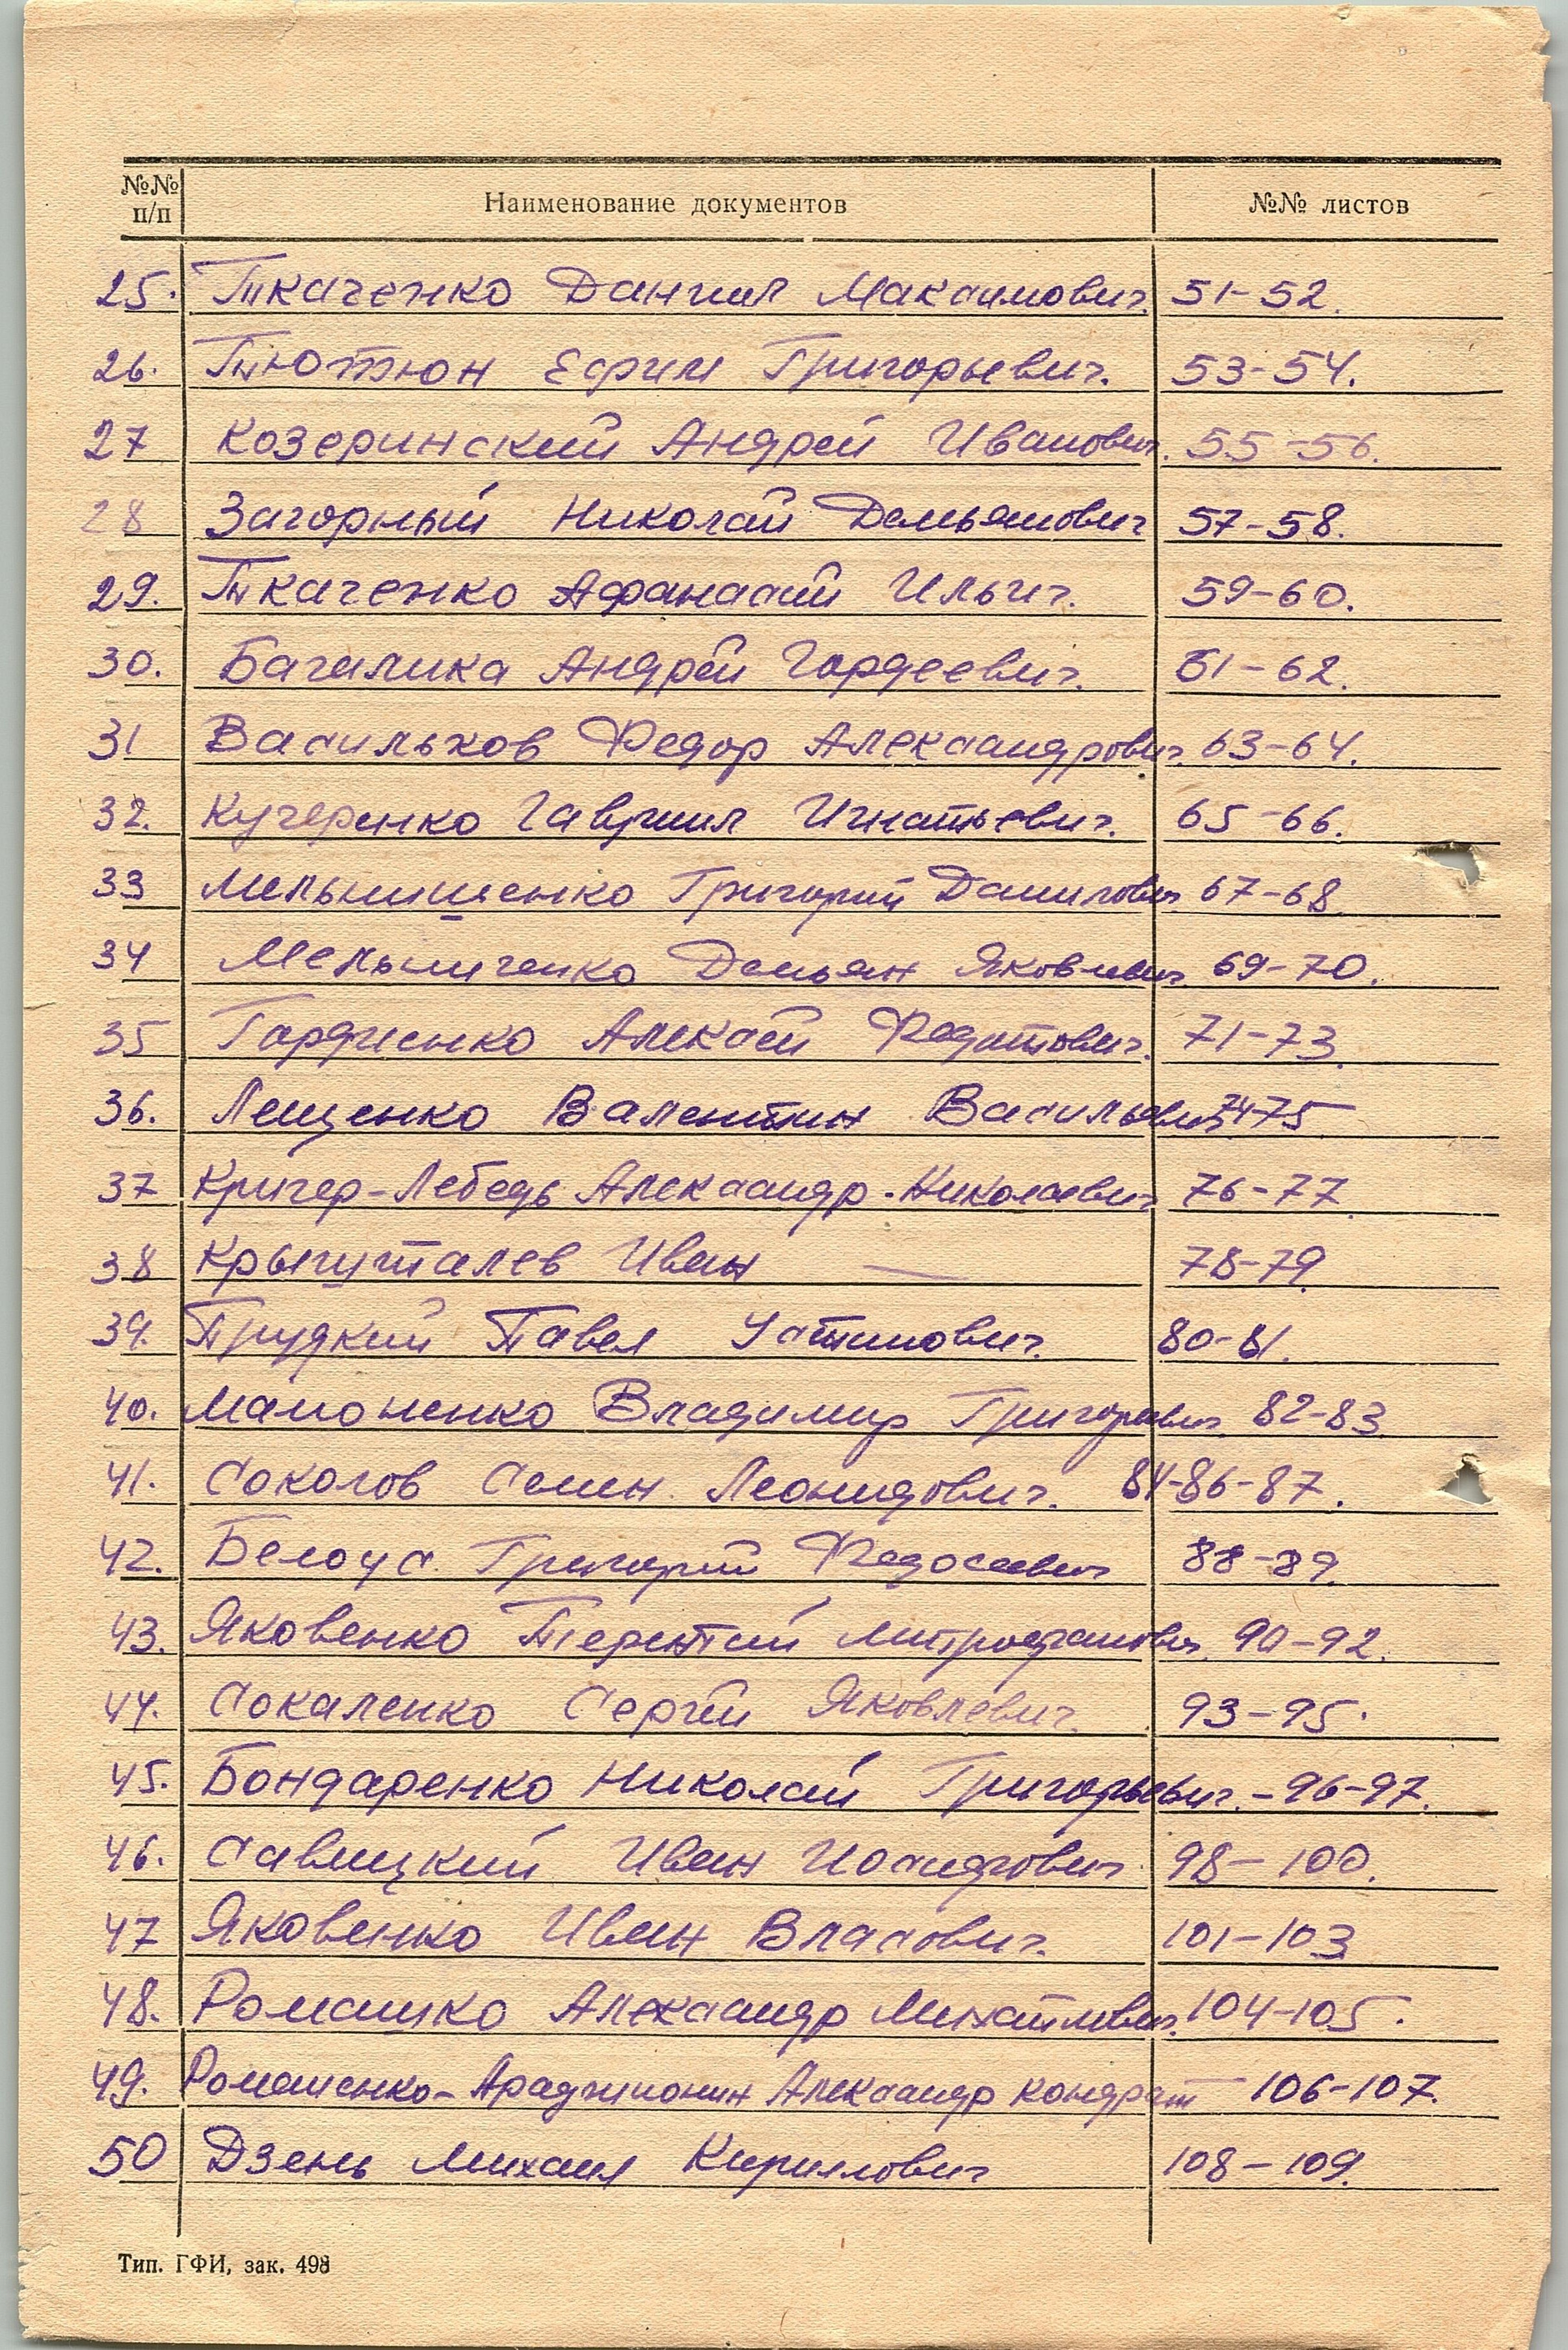 №№ п/п Наименование документов №№ листов
25. Ткаченко Даниил Максимович 51-52.
26. Тютюн Ефим Григорьевич. 53-54.
27 Козеринский Андрей Иванович. 55-56.
28 Загорный Николай Демьянович 57-58.
29. Ткаченко Афанасий Ильич. 59-60.
30. Багалика Андрей Гордеевич. 61-62.
31 Васильков Федор Александрович. 63-64.
32. Кучеренко Гавриил Игнатьевич. 65-66.
33 Мельнишенко Григорий Данилович 67-68
34 Мельниченко Демьян Яковлевич 69-70.
35 Гордиенко Алексей Федотович. 71-73.
36. Лещенко Валентин Васильевич 74-75
37 Кригер-Лебедь Александр Николаевич 76-77
38 Крыгуталев Иван — 78-79
39. Прудкий Павел Устинович. 80-81.
40. Мамоненко Владимир Григорьевич. 82-83
41. Соколов Семен Леонидович. 84-86-87.
42. Белоус Григорий Федосеевич 88-89.
43. Яковенко Терентий Митрофанович. 90-92.
44. Сокаленко Сергей Яковлевич. 93-95.
45. Бондаренко Николай Григорьевич. - 96-97.
46. Савицкий Иван Иосифович 98-100.
47 Яковенко Иван Власович. 101-103
48. Ромашко Александр Михайлович. 104-105.
49. Ромашенко- Александр Кондрат 106-107.
50 Дзень Михаил Кириллович 108-109.
Тип. ГФИ, зак. 498